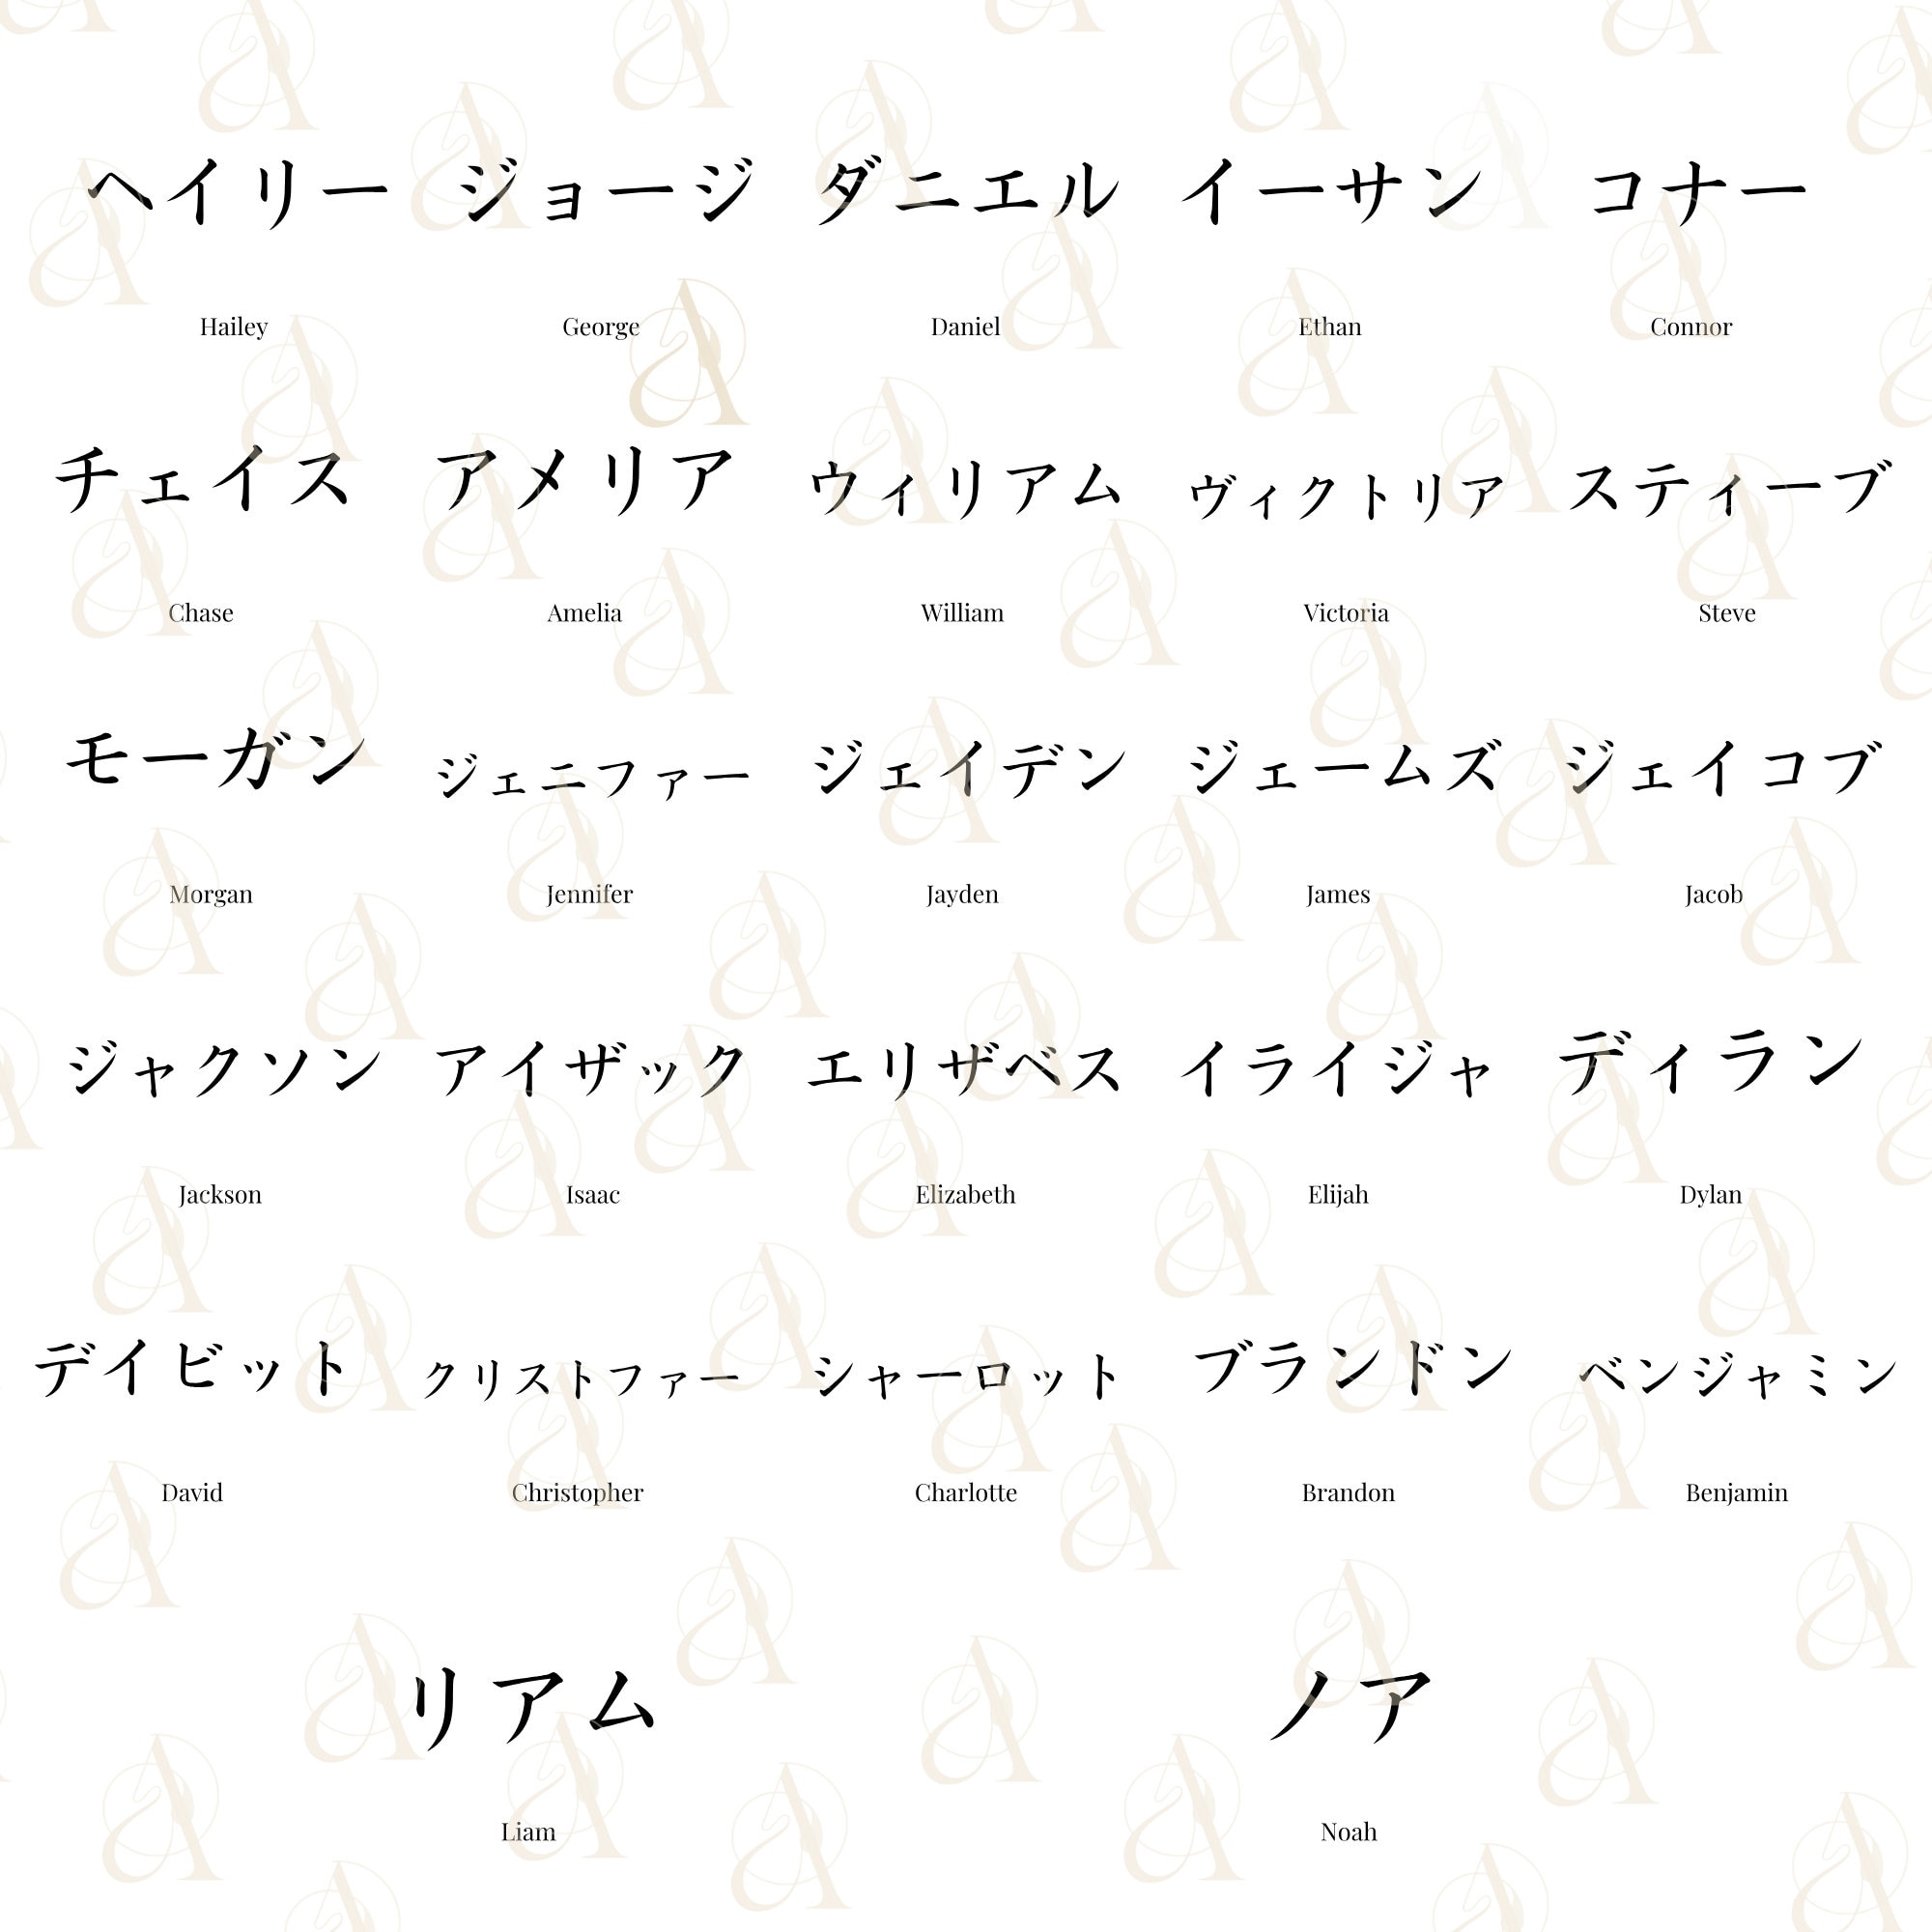 ヘイリー ジョージ ダニエル イーサン コナー
Hailey George Daniel Ethan Connor
チェイス アメリア ウィリアム ヴィクトリア スティーブ
Chase Amelia William Victoria Steve
モーガン ジェニファー ジェイデン ジェームズ ジェイコブ
Morgan Jennifer Jayden James Jacob
ジャクソン アイザック エリザベス イライジャ ディラン
Jackson Isaac Elizabeth Elijah Dylan
デイビット クリストファー シャーロット ブランドン ベンジャミン
David Christopher Charlotte Brandon Benjamin
リアム ノア
Liam Noah